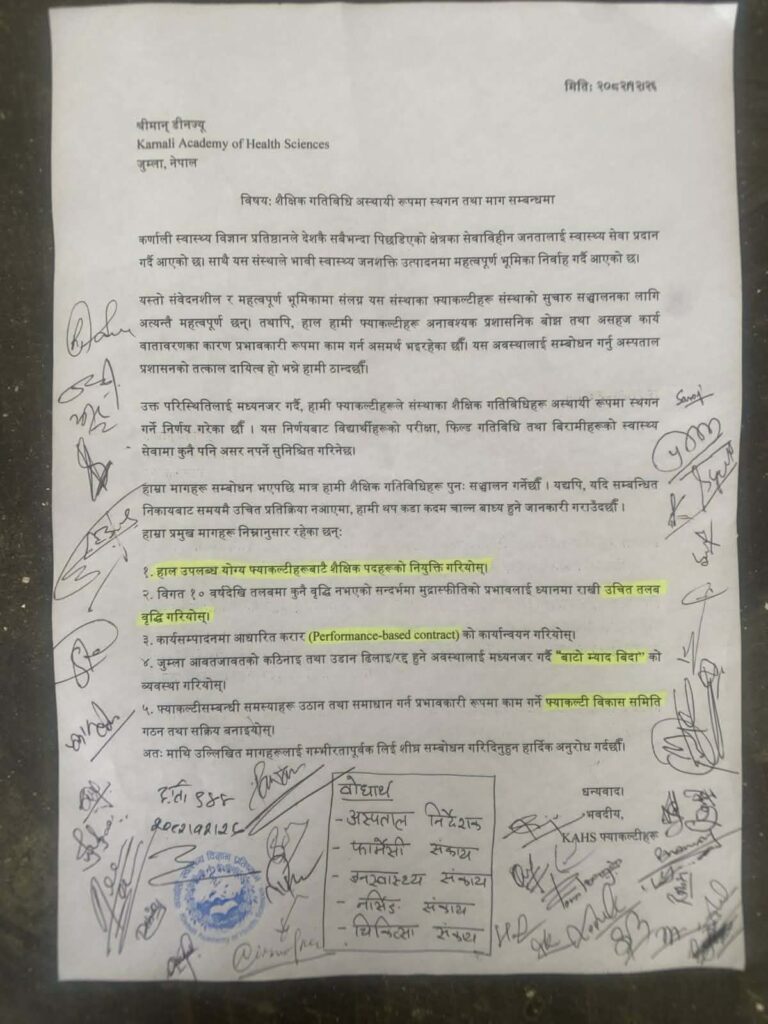 मितिः २०८२।१२।२६
श्रीमान् डीनज्यू
Karnali Academy of Health Sciences
जुम्ला, नेपाल
विषय: शैक्षिक गतिविधि अस्थायी रूपमा स्थगन तथा माग सम्बन्धमा
कर्णाली स्वास्थ्य विज्ञान प्रतिष्ठानले देशकै सबैभन्दा पिछडिएको क्षेत्रका सेवाविहीन जनतालाई स्वास्थ्य सेवा प्रदान
गर्दै आएको छ। साथै यस संस्थाले भावी स्वास्थ्य जनशक्ति उत्पादनमा महत्वपूर्ण भूमिका निर्वाह गर्दै आएको छ।
यस्तो संवेदनशील र महत्वपूर्ण भूमिकामा संलग्न यस संस्थाका फ्याकल्टीहरू संस्थाको सुचारु सञ्चालनका लागि
अत्यन्तै महत्वपूर्ण छन्। तथापि, हाल हामी फ्याकल्टीहरू अनावश्यक प्रशासनिक बोझ तथा असहज कार्य
वातावरणका कारण प्रभावकारी रूपमा काम गर्न असमर्थ भइरहेका छौँ। यस अवस्थालाई सम्बोधन गर्नु अस्पताल
प्रशासनको तत्काल दायित्व हो भन्ने हामी ठान्दछौँ।
उक्त परिस्थितिलाई मध्यनजर गर्दै, हामी फ्याकल्टीहरूले संस्थाका शैक्षिक गतिविधिहरू अस्थायी रूपमा स्थगन
गर्ने निर्णय गरेका छौँ । यस निर्णयबाट विद्यार्थीहरूको परीक्षा, फिल्ड गतिविधि तथा बिरामीहरूको स्वास्थ्य
सेवामा कुनै पनि असर नपर्ने सुनिश्चित गरिनेछ।
हाम्रा मागहरू सम्बोधन भएपछि मात्र हामी शैक्षिक गतिविधिहरू पुनः सञ्चालन गर्नेछौँ । यद्यपि, यदि सम्बन्धित
निकायबाट समयमै उचित प्रतिक्रिया नआएमा, हामी थप कडा कदम चाल्न बाध्य हुने जानकारी गराउँदछौँ ।
हाम्रा प्रमुख मागहरू निम्नानुसार रहेका छन्:
१. हाल उपलब्ध योग्य फ्याकल्टीहरूबाटै शैक्षिक पदहरूको नियुक्ति गरियोस्।
२. विगत १० वर्षदेखि तलबमा कुनै वृद्धि नभएको सन्दर्भमा मुद्रास्फीतिको प्रभावलाई ध्यानमा राखी उचित तलब
वृद्धि गरियोस्।
३. कार्यसम्पादनमा आधारित करार (Performance-based contract) को कार्यान्वयन गरियोस्।
४. जुम्ला आवतजावतको कठिनाइ तथा उडान ढिलाइ/रद्द हुने अवस्थालाई मध्यनजर गर्दै "बाटो म्याद बिदा" को
व्यवस्था गरियोस्।
५. फ्याकल्टीसम्बन्धी समस्याहरू उठान तथा समाधान गर्न प्रभावकारी रूपमा काम गर्ने फ्याकल्टी विकास समिति
गठन तथा सक्रिय बनाइयोस्।
अतः माथि उल्लिखित मागहरूलाई गम्भीरतापूर्वक लिई शीघ्र सम्बोधन गरिदिनुहुन हार्दिक अनुरोध गर्दछौँ।
धन्यवाद।
भवदीय,
KAHS फ्याकल्टीहरू
दर्ता ९४४
२०८२।१२।२६
वोधार्थ
- अस्पताल निर्देशक
- फार्मेसी संकाय
- जनस्वास्थ्य संकाय
- नर्सिङ संकाय
- चिकित्सा संकाय